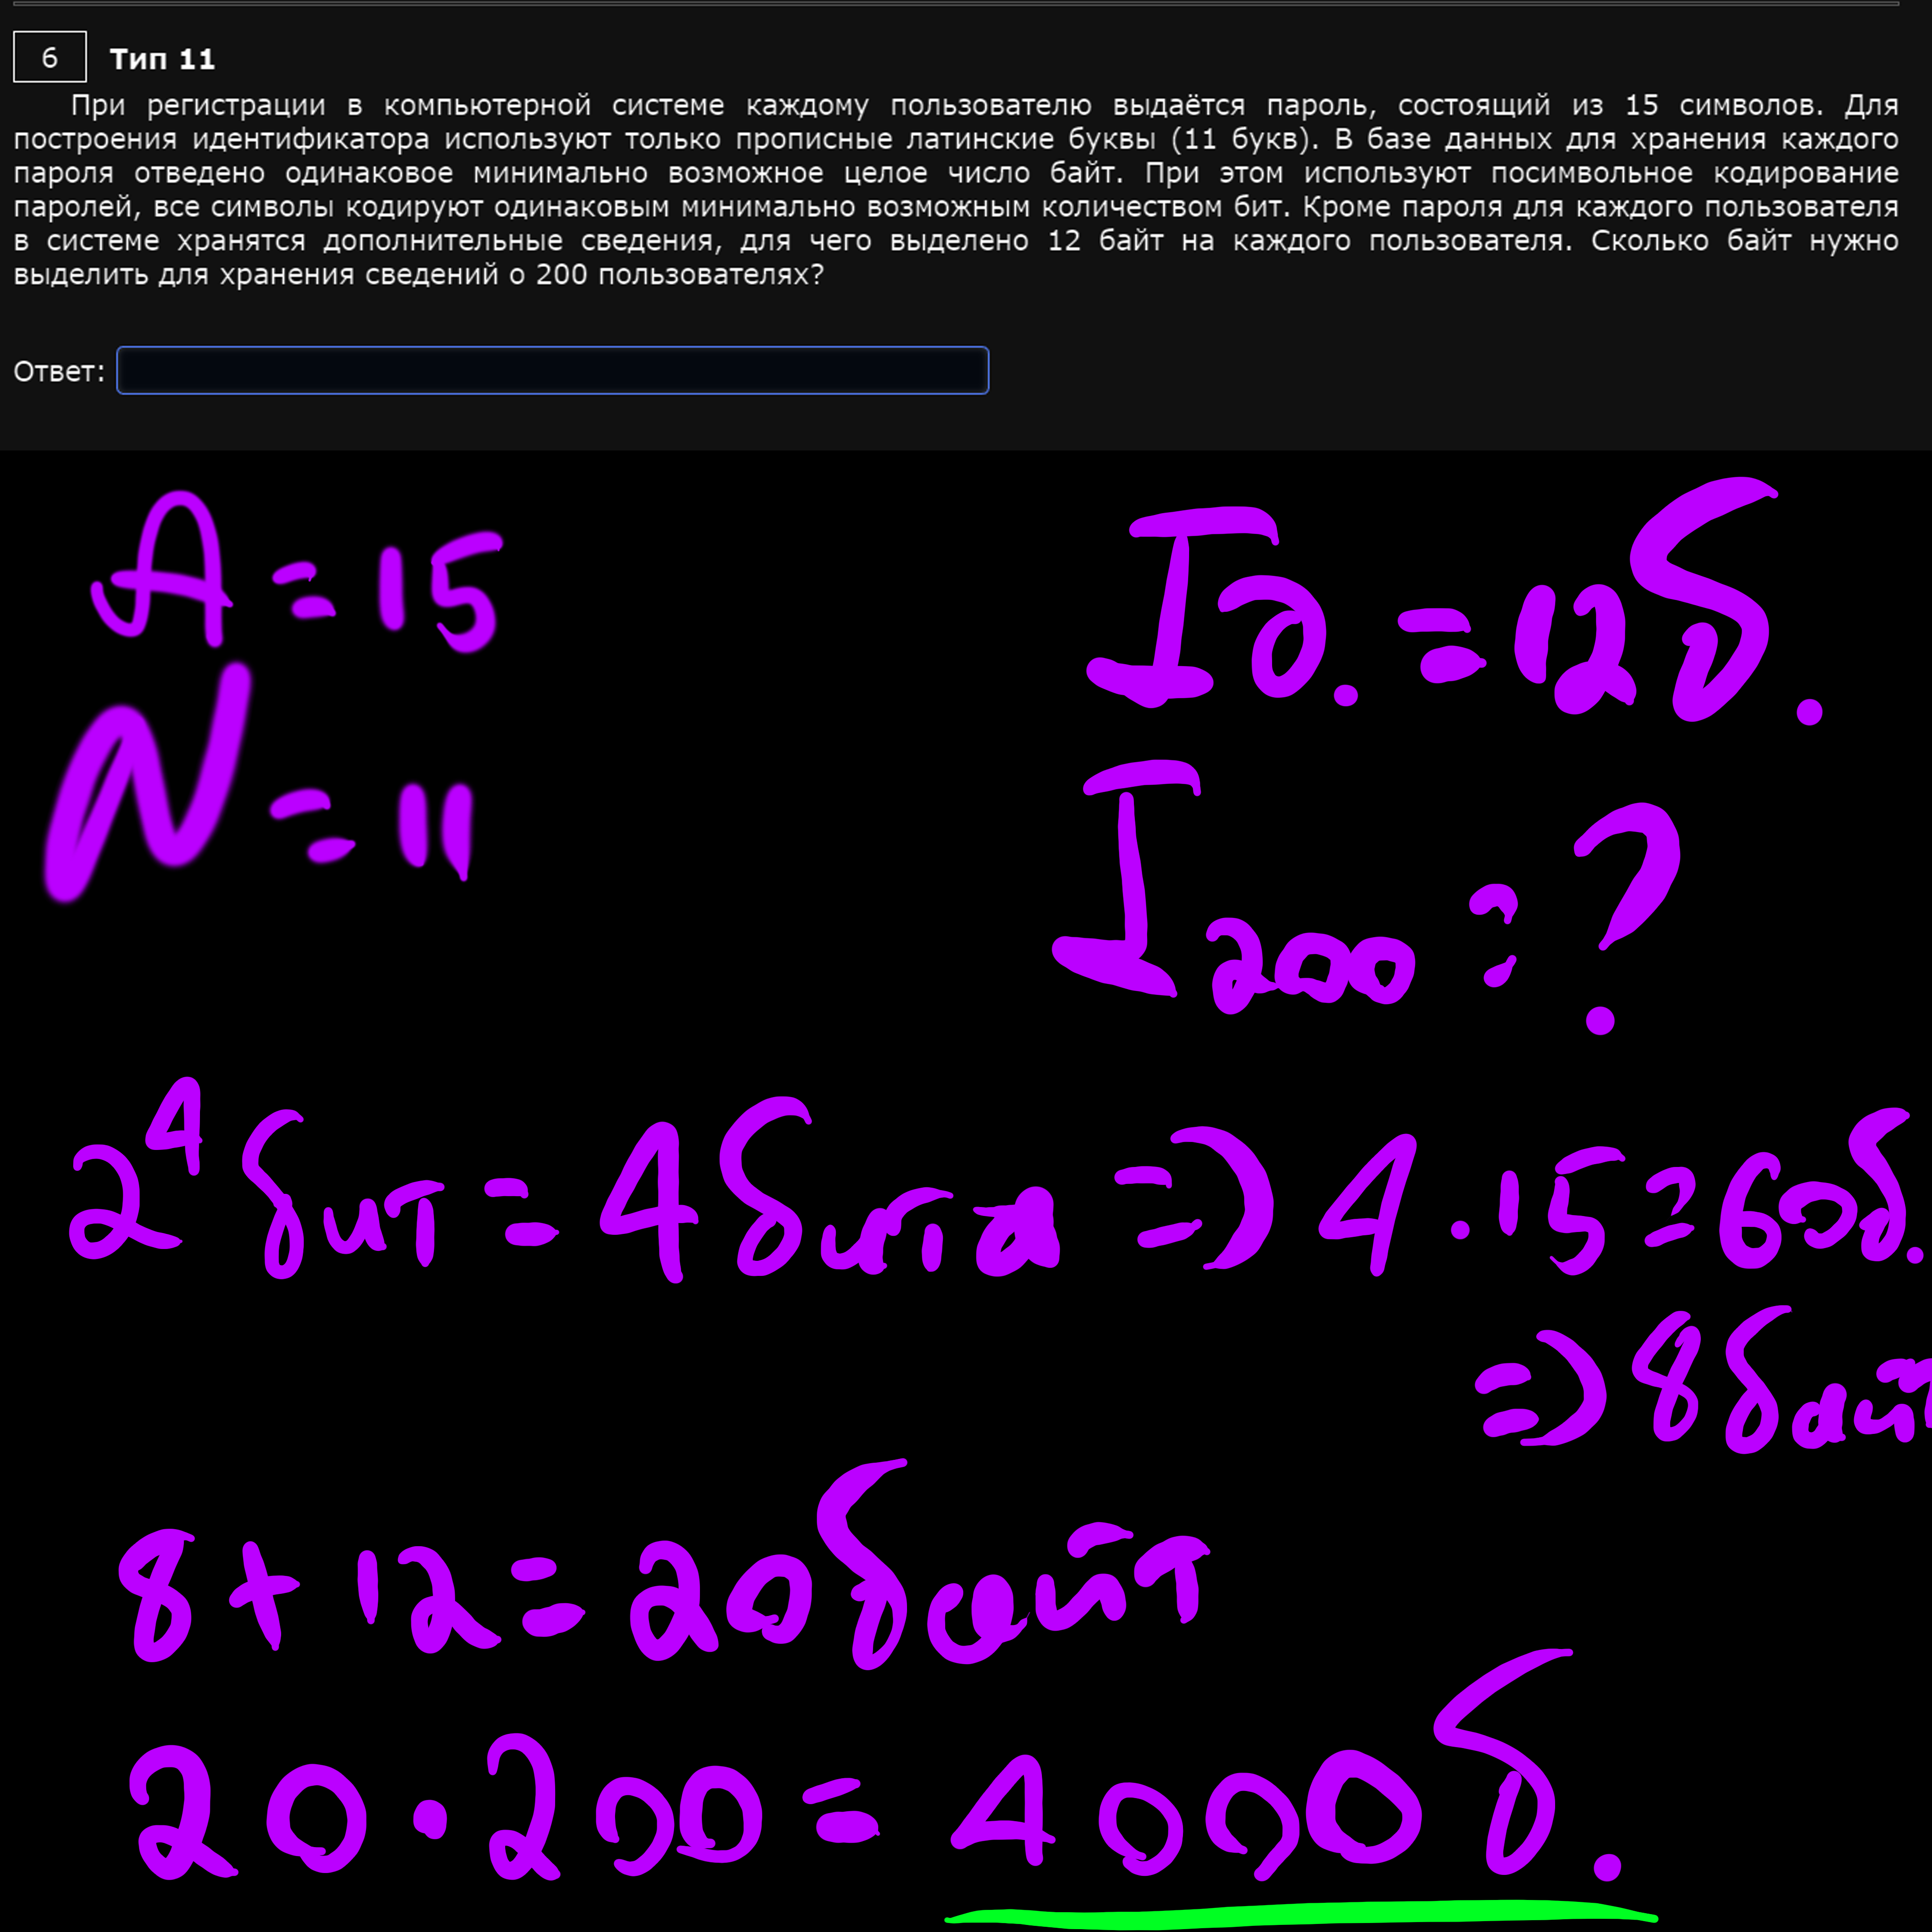 6 Тип 11
При регистрации в компьютерной системе каждому пользователю выдаётся пароль, состоящий из 15 символов. Для
построения идентификатора используют только прописные латинские буквы (11 букв). В базе данных для хранения каждого
пароля отведено одинаковое минимально возможное целое число байт. При этом используют посимвольное кодирование
паролей, все символы кодируют одинаковым минимально возможным количеством бит. Кроме пароля для каждого пользователя
в системе хранятся дополнительные сведения, для чего выделено 12 байт на каждого пользователя. Сколько байт нужно
выделить для хранения сведений о 200 пользователях?
Ответ:
A = 15
I д. = 12 б.
N = 11
I 200 = ?
2⁴ бит = 4 бита => 4 · 15 = 60 б.
=> 8 байт
8 + 12 = 20 байт
20 · 200 = 4000 б.